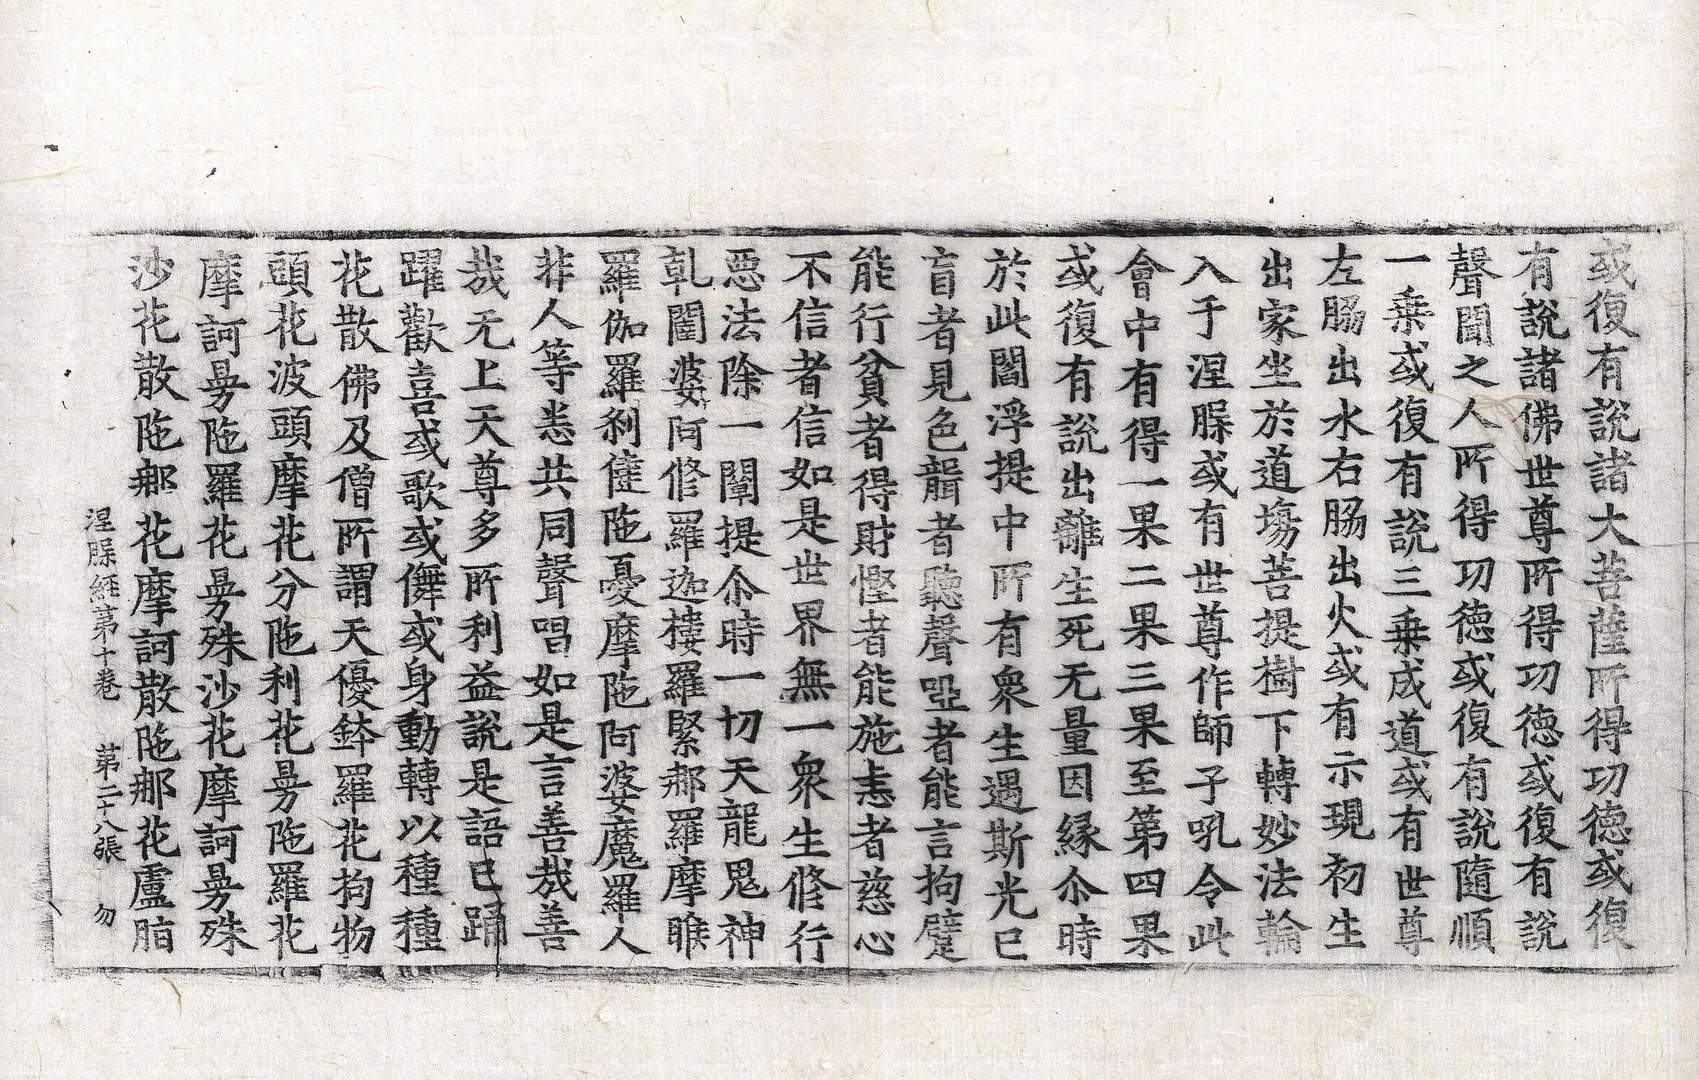 或復有說諸大菩薩所得功德或復
有說諸佛世尊所得功德或復有說
聲聞之人所得功德或復有說隨順
一乘或復有說三乘成道或有世尊
左脇出水右脇出火或有示現初生
出家坐於道場菩提樹下轉妙法輪
入于涅槃或有世尊作師子吼令此
會中有得一果二果三果至第四果
或復有說出離生死无量因緣尒時
於此閻浮提中所有衆生遇斯光已
盲者見色聾者聽聲啞者能言拘躄
能行貧者得財慳者能施恚者慈心
不信者信如是世界無一衆生修行
惡法除一闡提尒時一切天龍鬼神
乹闥婆阿修羅迦樓羅緊那羅摩睺
羅伽羅剎健陁憂摩陁阿婆魔羅人
非人等悉共同聲唱如是言善哉善
哉无上天尊多所利益說是語已踊
躍歡喜或歌或儛或身動轉以種種
花散佛及僧所謂天優鉢羅花拘物
頭花波頭摩花分陁利花曼陁羅花
摩訶曼陁羅花曼殊沙花摩訶曼殊
沙花散陁那花摩訶散陁那花盧脂
涅槃經第十卷 第二十八張 勿